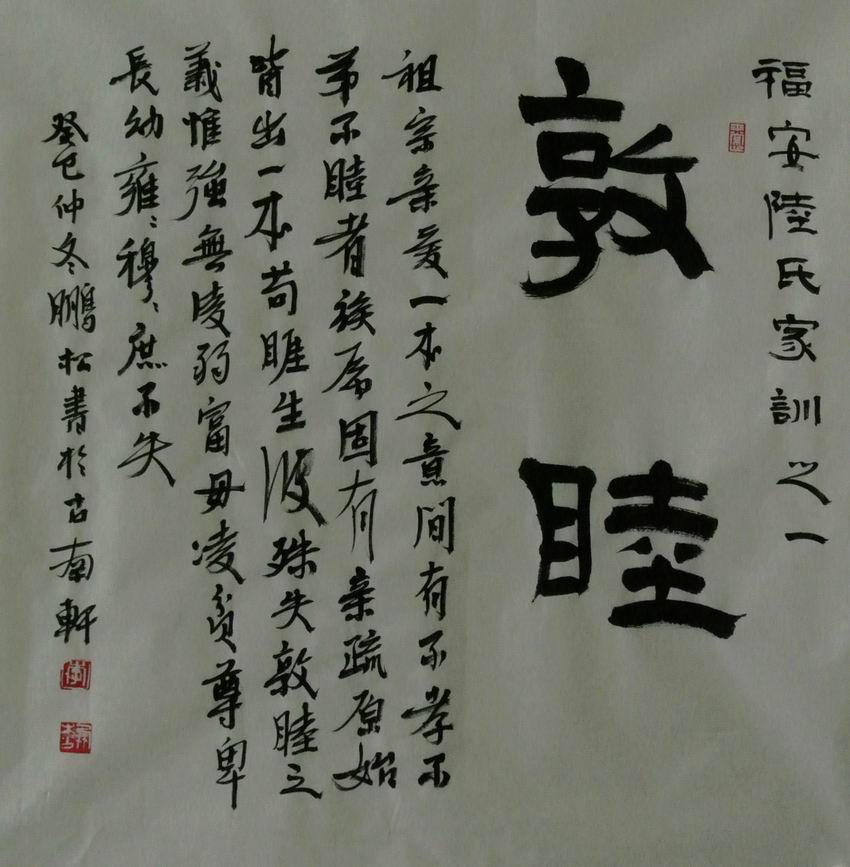 福安陸氏家訓之一
敦睦
祖宗亲爰一本之意间有不孝不
弟不睦者族属固有亲疏原始
皆出一本苟睢生彼殊失敦睦之
義惟強無凌弱富毋凌貧尊卑
長幼雍〻穆〻庶不失
癸巳仲冬鵬松書於古南軒